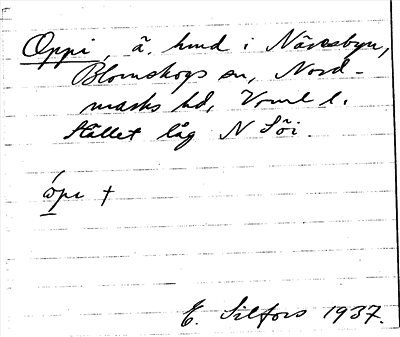 Oppi, ä. hmd i Näresbyn,
Blomskogs sn, Nord-
marks hd, Vrml l.
Stället låg N Söi.
òpi †
E. Silfors 1937.